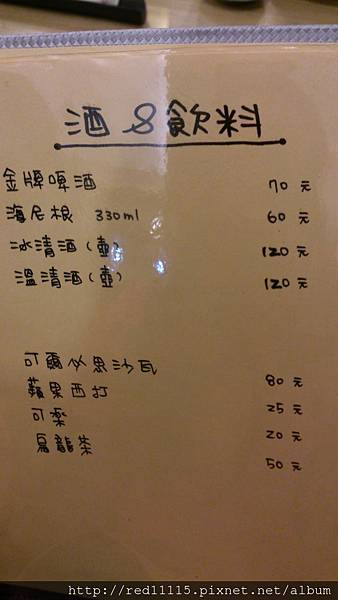 酒&飲料
金牌啤酒 70元
海尼根 330ml 60元
冰清酒(壺) 120元
溫清酒(壺) 120元
可爾必思沙瓦 80元
蘋果西打 25元
可樂 20元
烏龍茶 50元
http://red11115.pixnet.net/album